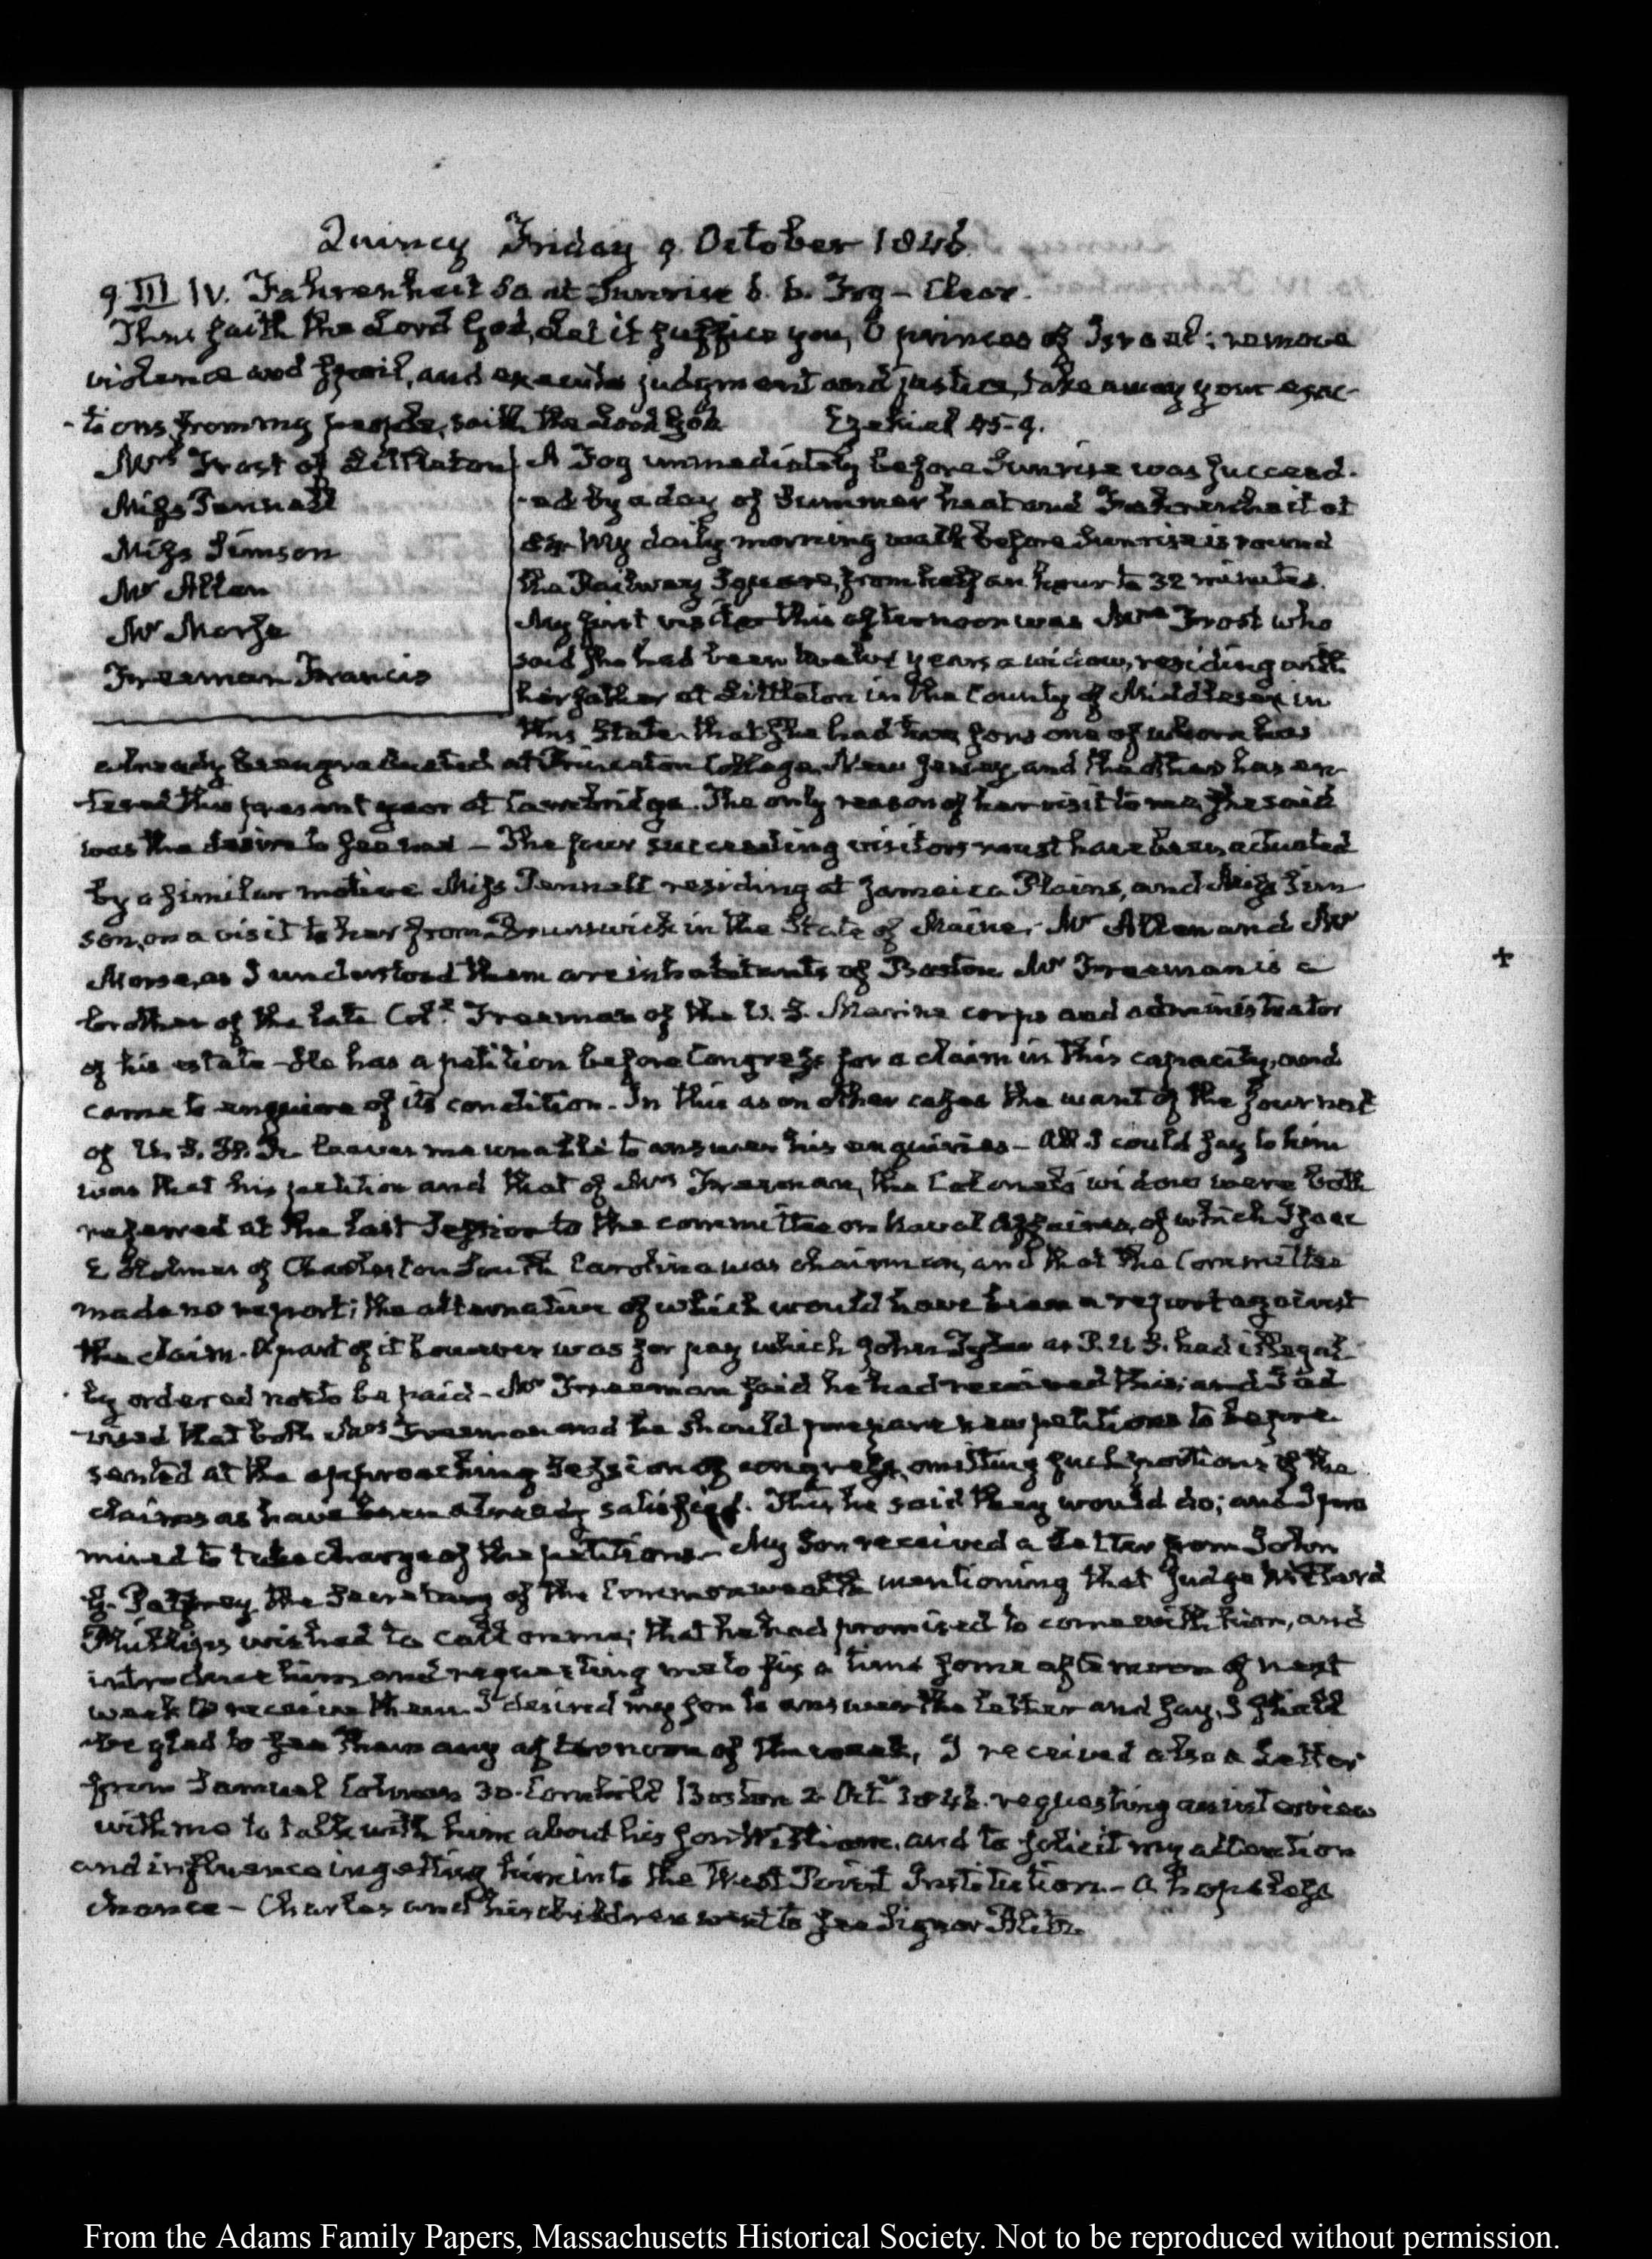 Quincy Friday 9 October 1846.
9. III. IV. Fahrenheit 50 at Sunrise 6. 6. Fog – Clear.
Thus saith the Lord God, Let it suffice you, O princes of Israel: remove
violence and spoil, and execute judgment and justice, take away your exac-
-tions from my people, saith the Lord God Ezekiel 45-9.
Mrs Frost of Littleton
Miss Pennell
Miss Simson
Mr Allen
Mr Morse
Freeman Francis
A Fog immediately before Sunrise was succeed-
-ed by a day of Summer heat and Fahrenheit at
My daily morning walk before Sunrise is round
the Railway Square, from half an hour to 32 minutes.
My first visitor this afternoon was Mrs Frost who
said she had been twelve years a widow, residing with
her father at Littleton in the County of Middlesex in
this State. that she had two sons one of whom has
already been graduated at Princeton College, New Jersey, and the other has en-
-tered this present year at Cambridge. The only reason of her visit to me, she said
was the desire to see me – The four succeeding visitors must have been actuated
by a similar motive Miss Pennell residing at Jamaica Plains, and Miss Sim
son, on a visit to her from Brunswick in the State of Maine. Mr Allen and Mr
Morse, as I understood them are inhabitants of Boston Mr Freeman is a
brother of the late Col. Freeman of the U. S. Marine corps and administrator
of his estate – He has a petition before Congress for a claim in this capacity, and
came to enquire of its condition. In this as on other cases the want of the journal
of U. S. H. R. leaves me unable to answer his enquiries – All I could say to him
was that his petition and that of Mrs Freeman, the Colonel's widow were both
referred at the last Session to the committee on Naval Affairs, of which Isaac
E Holmes of Charleston South Carolina was chairman, and that the Committee
made no report; the alternative of which would have been a report against
the claim. A part of it however was for pay which John Tyler as P. U. S. had illegal
ly ordered not to be paid – Mr Freeman said he had received this; and I ad
-vised that both Mrs Freeman and he should prepare new petitions to be pre
sented at the approaching Session of congress, omitting such portions of the
claims as have been already satisfied. This he said they would do; and I pro
mised to take charge of the petitions – My Son received a Letter from John
G. Palfrey the Secretary of the Commonwealth mentioning that Judge Willard
Phillips wished to call on me; that he had promised to come with him, and
introduce him and requesting me to fix a time some afternoon of next
week to receive them. I desired my son to answer the letter and say, I shall
be glad to see them any afternoon of the week, I received also a Letter
from Samuel Colman 30. Cornhill Boston 2. Oct. 1846. requesting an interview
with me to talk with him about his son William, and to solicit my attention
and influence in getting him into the West Point Institution – a hopeless
chance – Charles and his children went to see Signor Blitz.
+
From the Adams Family Papers, Massachusetts Historical Society. Not to be reproduced without permission.